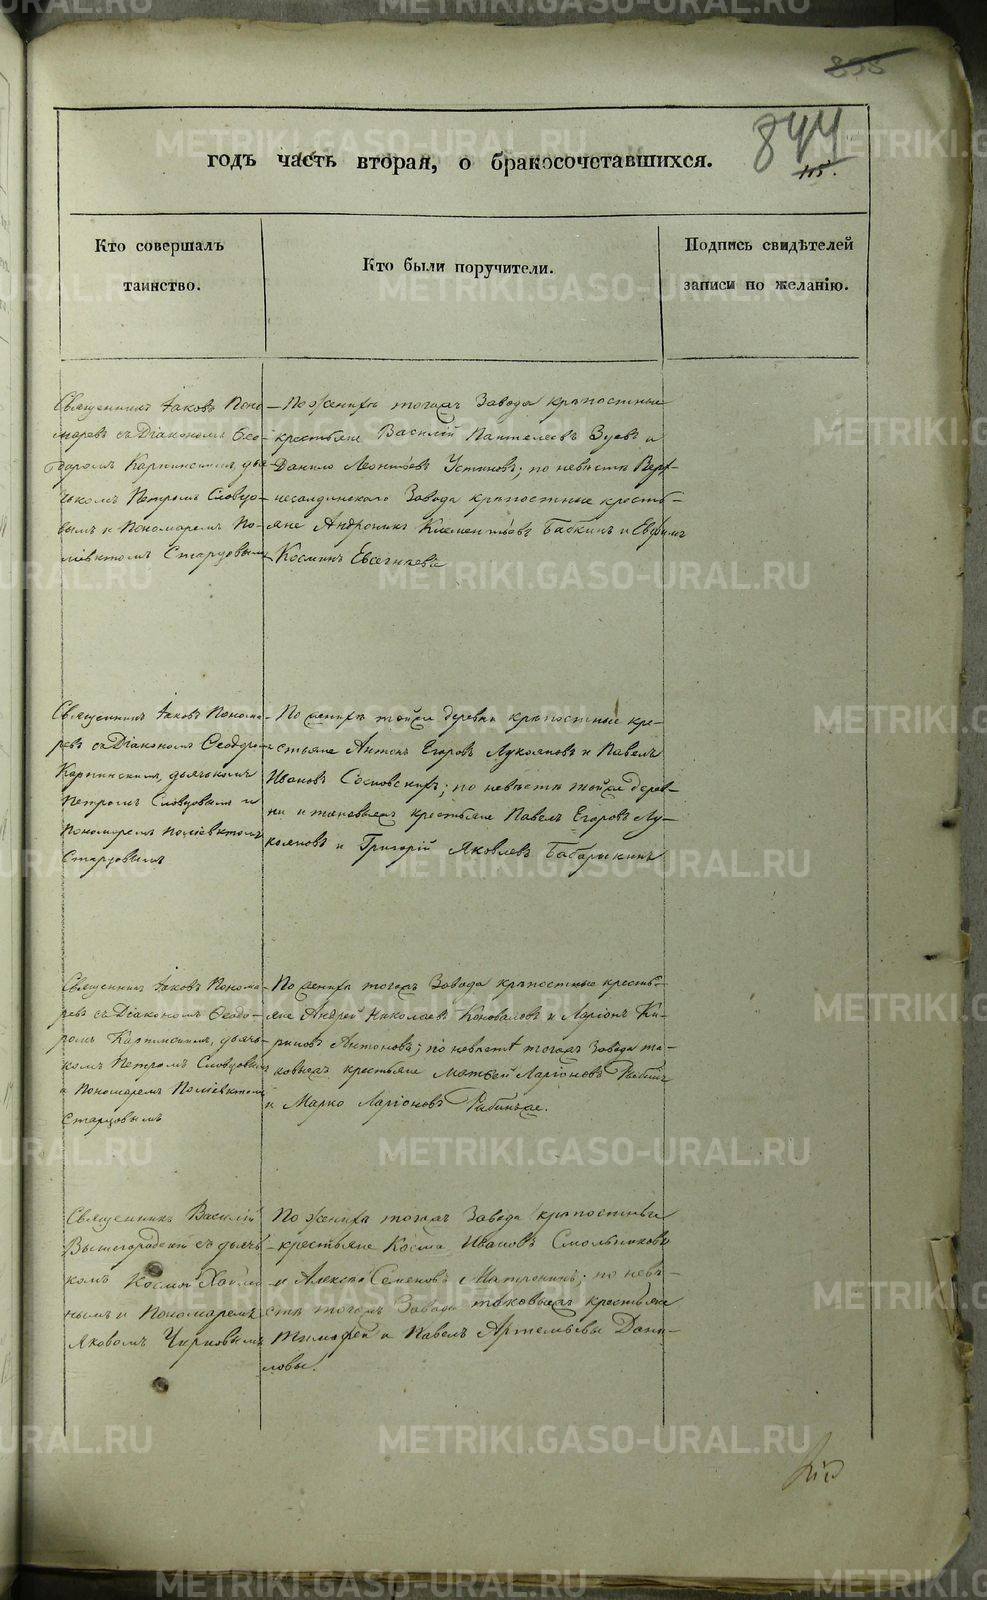 855
844
115.
годъ часть вторая, о бракосочетавшихся.
Кто совершалъ
таинство.
Кто были поручители.
Подпись свидѣтелей
записи по желанію.
Священникъ Іаковъ Поно-
маревъ съ Діакономъ Ѳео-
доромъ Карпинскимъ, дья-
чкомъ Петромъ Словцо-
вымъ и Пономаремъ По-
ліевктомъ Старцовымъ
По женихѣ тогожъ Завода крѣпостные
крестьяне Василій Пантелеевъ Зуевъ и
Данило Леонтьевъ Устиновъ; по невѣстѣ Верх-
несалдинскаго Завода крѣпостные кресть-
яне Андроникъ Климентьевъ Бабкинъ и Евфимъ
Косминъ Евсегнѣевъ
Священникъ Іаковъ Понома-
ревъ съ Діакономъ Ѳеодоромъ
Карпинскимъ, дьячкомъ
Петромъ Словцовымъ и
Пономаремъ Поліевктомъ
Старцовымъ
По женихѣ тойже деревни крѣпостные кре-
стьяне Антонъ Егоровъ Лукояновъ и Павелъ
Ивановъ Сосновскихъ; по невѣстѣ тойже дерев-
ни и таковыежъ крестьяне Павелъ Егоровъ Лу-
кояновъ и Григорій Яковлевъ Бабарыкинъ
Священникъ Іаковъ Понома-
ревъ съ Діакономъ Ѳеодо-
ромъ Карпинскимъ, дьяч-
комъ Петромъ Словцовымъ
и Пономаремъ Поліевктомъ
Старцовымъ
По женихѣ тогожъ Завода крѣпостные кресть-
яне Андрей Николаевъ Коноваловъ и Ларіонъ Ки-
риловъ Антоновъ; по невѣстѣ тогожъ Завода та-
ковыежъ крестьяне Матвей Ларіоновъ
и Марко Ларіоновъ
Священникъ Василій
Вышегородскій съ дьяч-
комъ Космой
нымъ и Пономаремъ
Яковомъ Чирковымъ
По женихѣ тогожъ Завода крѣпостные
крестьяне Косма Ивановъ Смольниковъ
и Алексѣй Семеновъ Матронинъ; по невѣ-
стѣ тогожъ Завода таковыежъ крестьяне
Тимофей и Павелъ Артемьевы Дани-
ловы.
METRIKI.GASO-URAL.RU